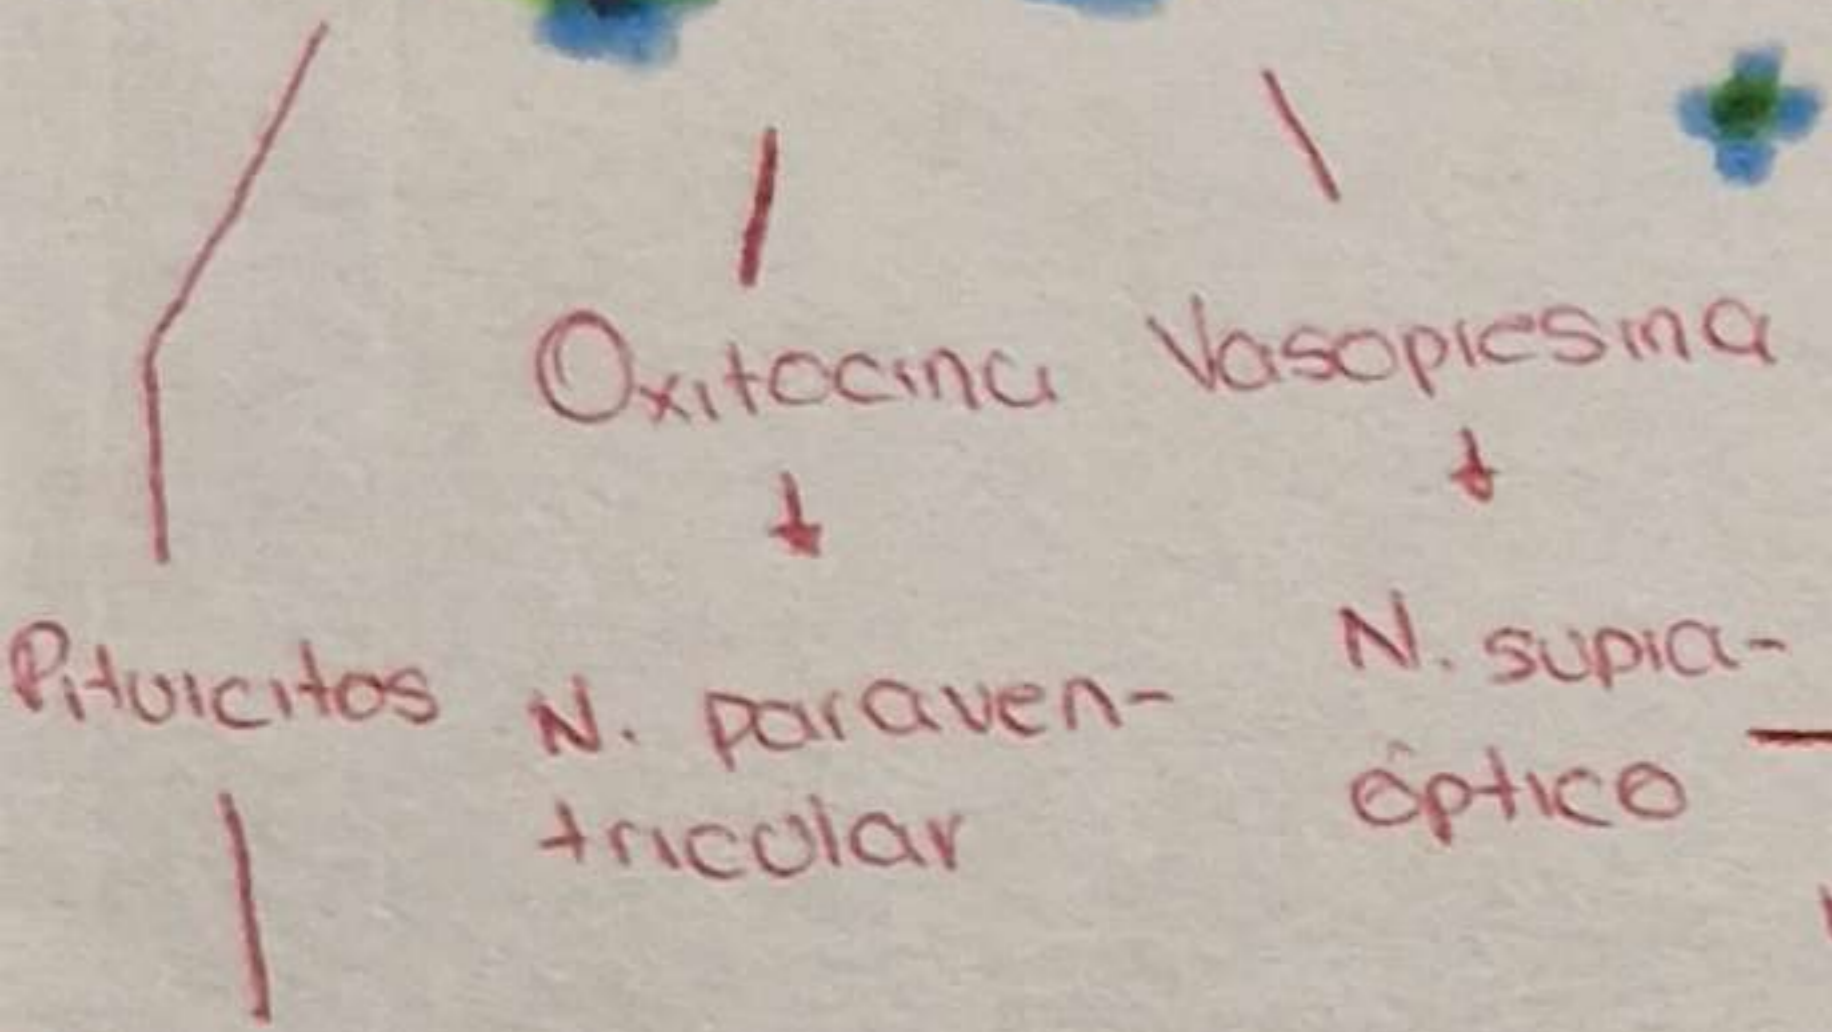 Oxitocina Vasopresina
Pituicitos N. paraven-
tricular
N. supra-
óptico